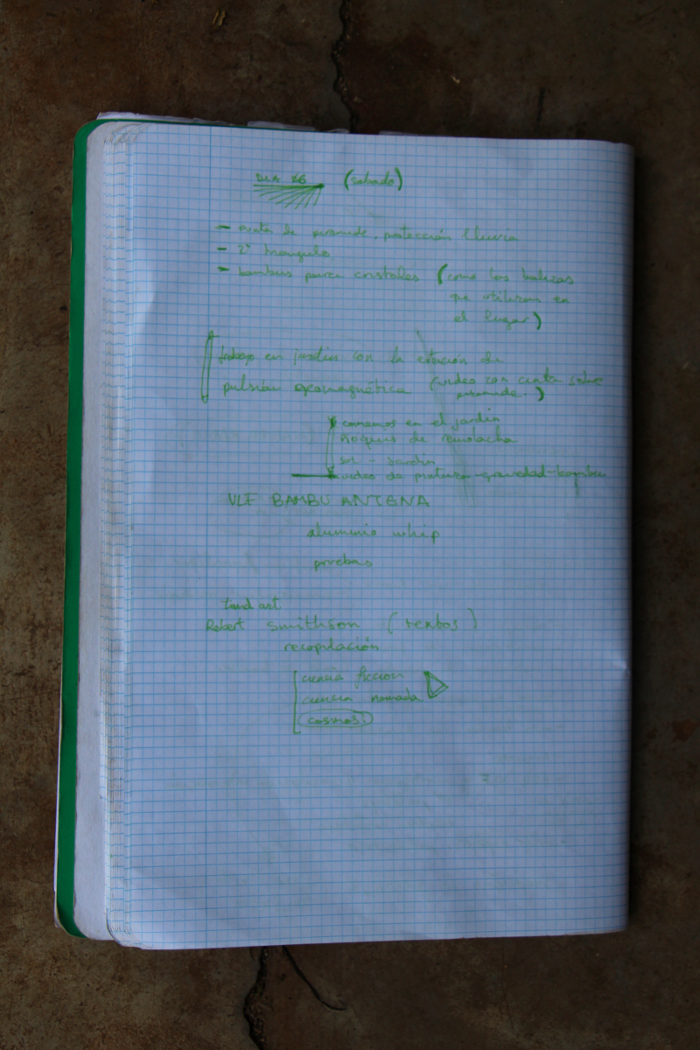 DIA 26 (sabado)
- de piramide, protección lluvia
- 2º triangulo
- bambus para cristales (como las balizas
que utilizan en
el lugar)
trabajo en jardin con la estación de
pulsión geomagnética (video con cinta sobre
piramide.)
comemos en el jardin
de remolacha
sol - jardin
video de pintura-gravedad-bambu
VLF BAMBU ANTENA
aluminio whip
pruebas
land art.
Robert Smithson (textos)
recopilación
ciencia ficcion
ciencia nomada
cosmos